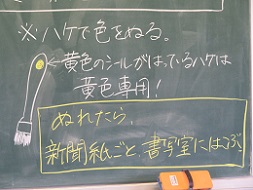 ※ハケで色をぬる。
←黄色のシールがはっているハケは
黄色専用！
ぬれたら、
新聞紙ごと、書写室にはこぶ